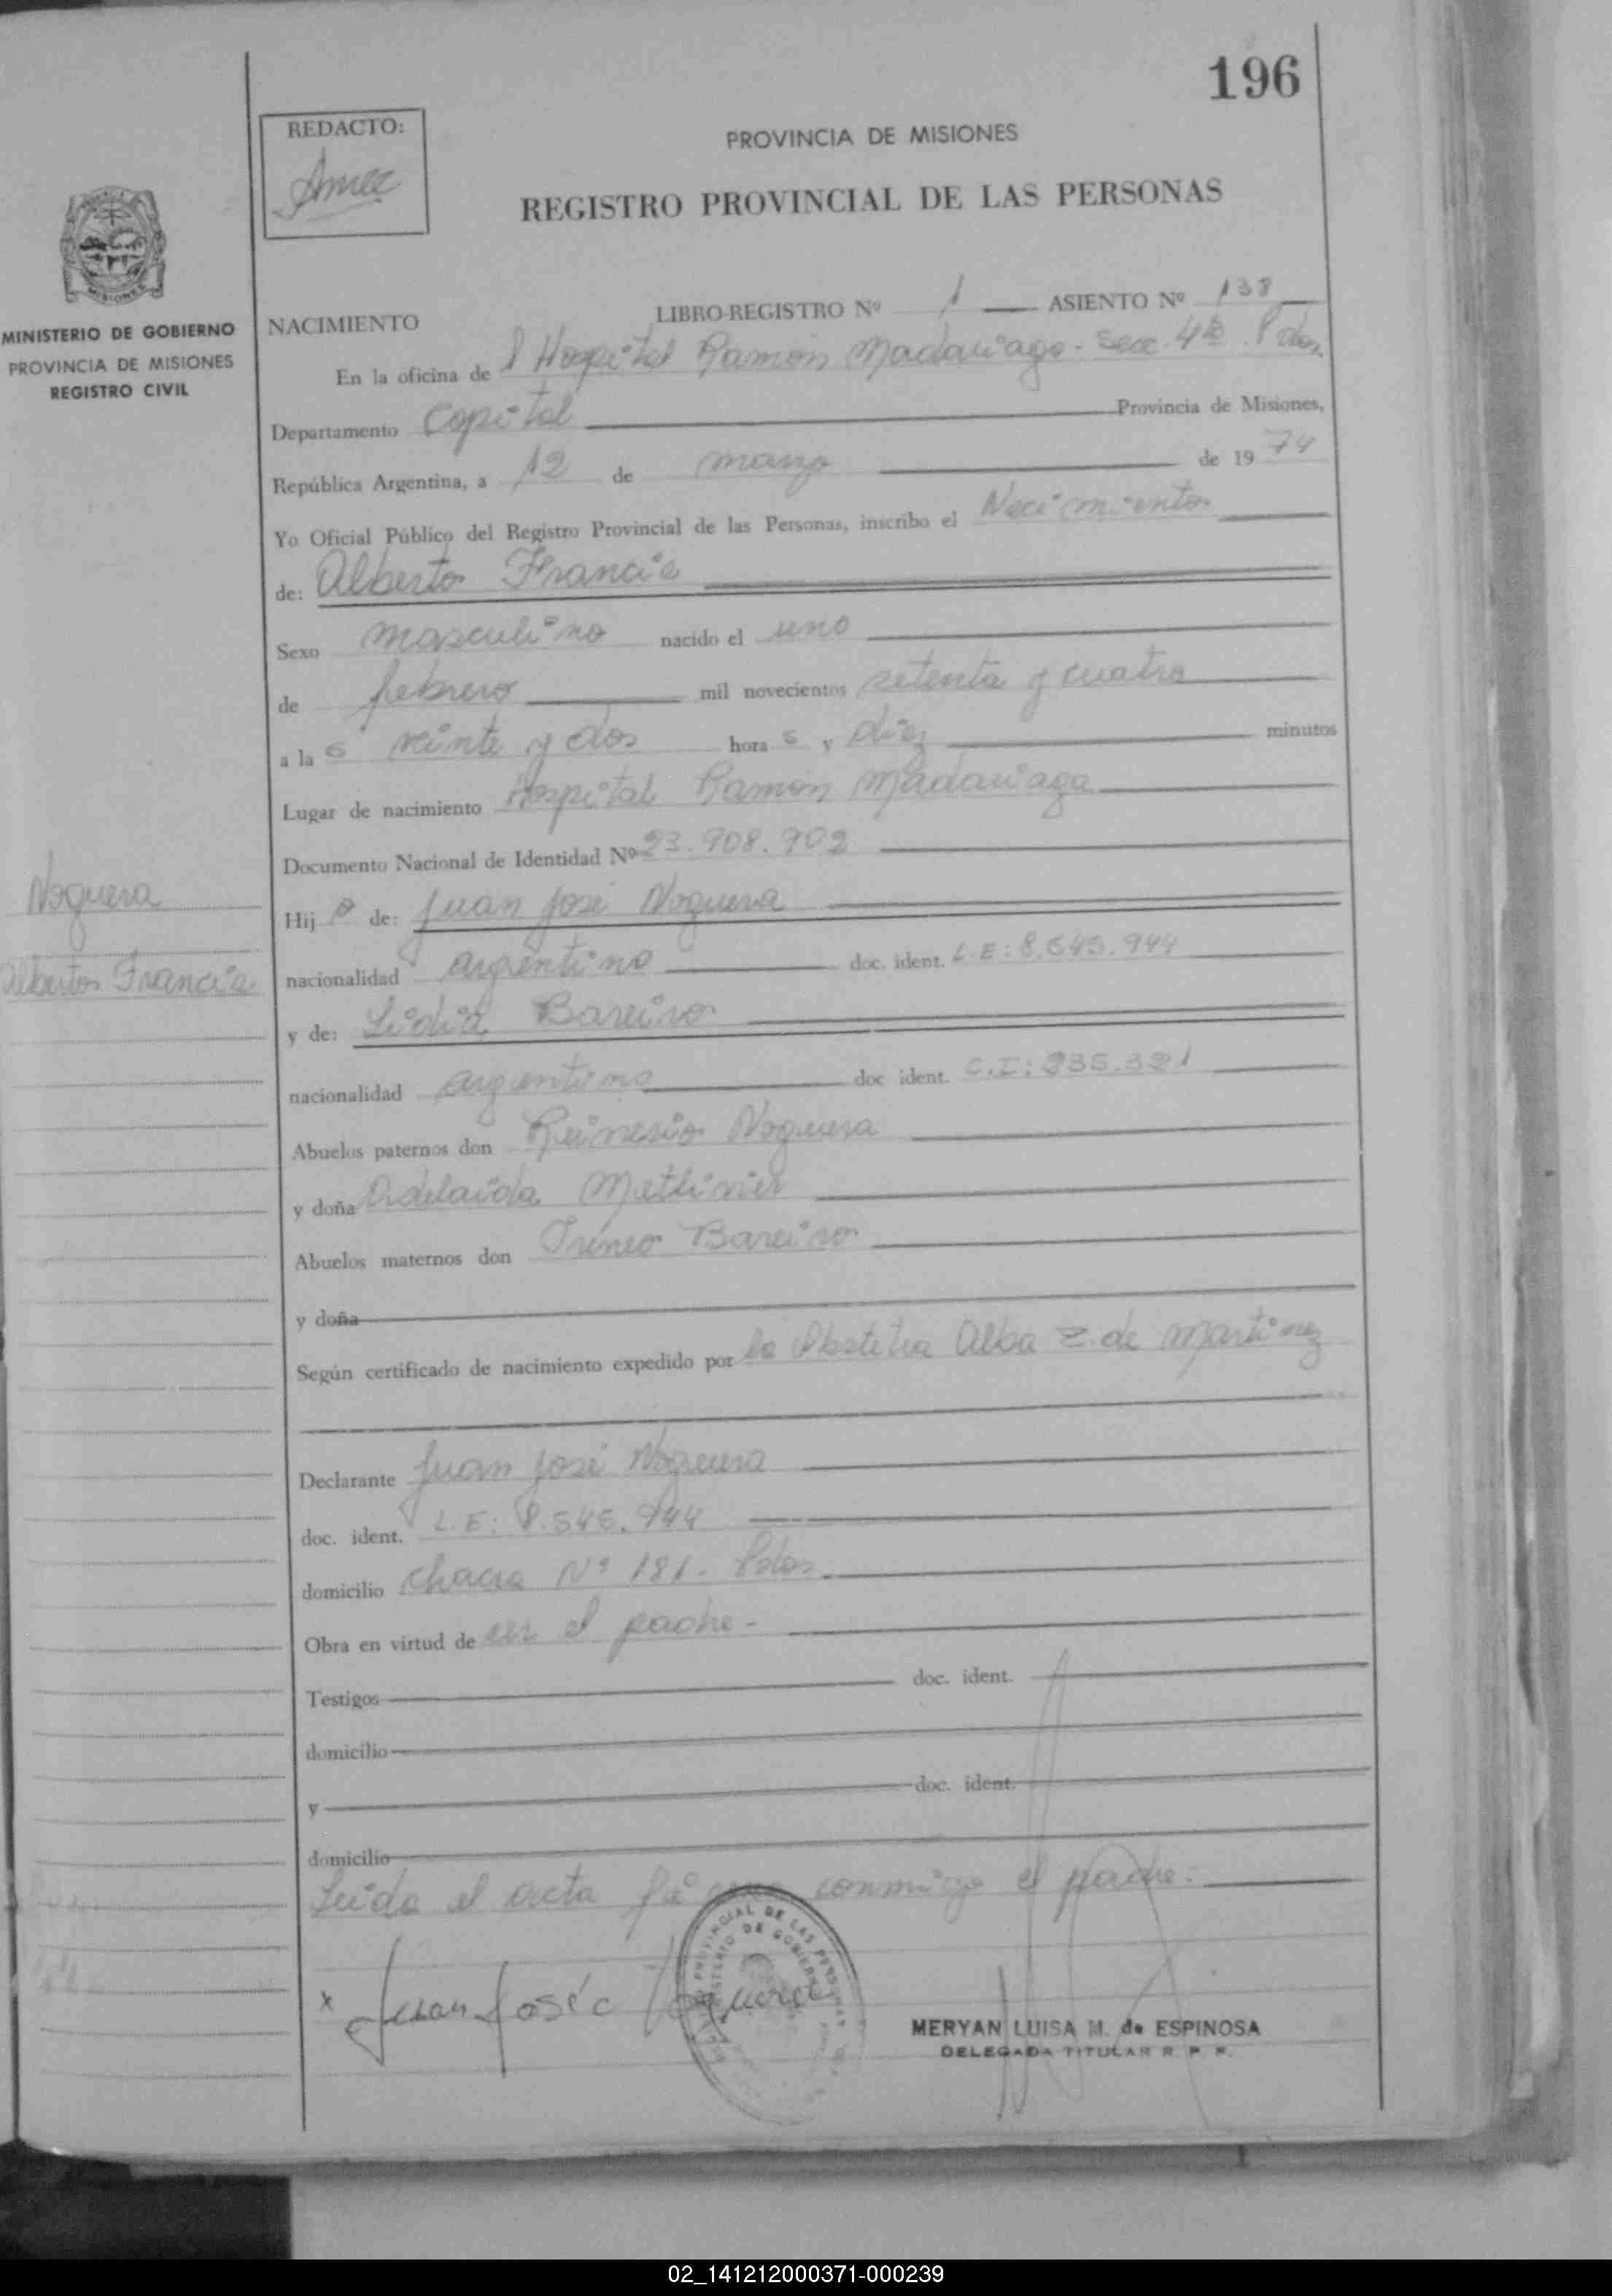 196
REDACTO:
PROVINCIA DE MISIONES
REGISTRO PROVINCIAL DE LAS PERSONAS
MISIONES
MINISTERIO DE GOBIERNO
PROVINCIA DE MISIONES
REGISTRO CIVIL
NACIMIENTO LIBRO-REGISTRO Nº 1 ASIENTO Nº 138
En la oficina de l Hospital Ramón Madariaga - Secc. 4ta. Pdas.
Departamento Capital Provincia de Misiones,
República Argentina, a 12 de marzo de 1974
Yo Oficial Público del Registro Provincial de las Personas, inscribo el Nacimiento
de: Alberto Francia
Sexo masculino nacido el uno
de febrero mil novecientos setenta y cuatro
a la s veinte y dos hora s y diez minutos
Lugar de nacimiento Hospital Ramón Madariaga
Documento Nacional de Identidad Nº 23.908.902
Noguera
Hij o de: Juan José Noguera
Alberto Francia
nacionalidad argentino doc. ident. L.E: 8.545.944
y de: Lidia Bareiro
nacionalidad argentino doc ident. C.I: 235.321
Abuelos paternos don Noguera
y doña Adelaida
Abuelos maternos don Ireneo Bareiro
y doña
Según certificado de nacimiento expedido por la Obstetra Alba Z. de Martinez
Declarante Juan José Noguera
doc. ident. L.E: 8.545.944
domicilio Chacra Nº 181 - Pdas.
Obra en virtud de ser el padre -
Testigos doc. ident.
domicilio
y doc. ident.
domicilio
Leida el acta conmigo el padre:
x Juan José Noguera
PROVINCIAL DE LAS PERSONAS
MINISTERIO DE GOBIERNO
MERYAN LUISA M. de ESPINOSA
DELEGADA TITULAR R. P. P.
02_141212000371-000239